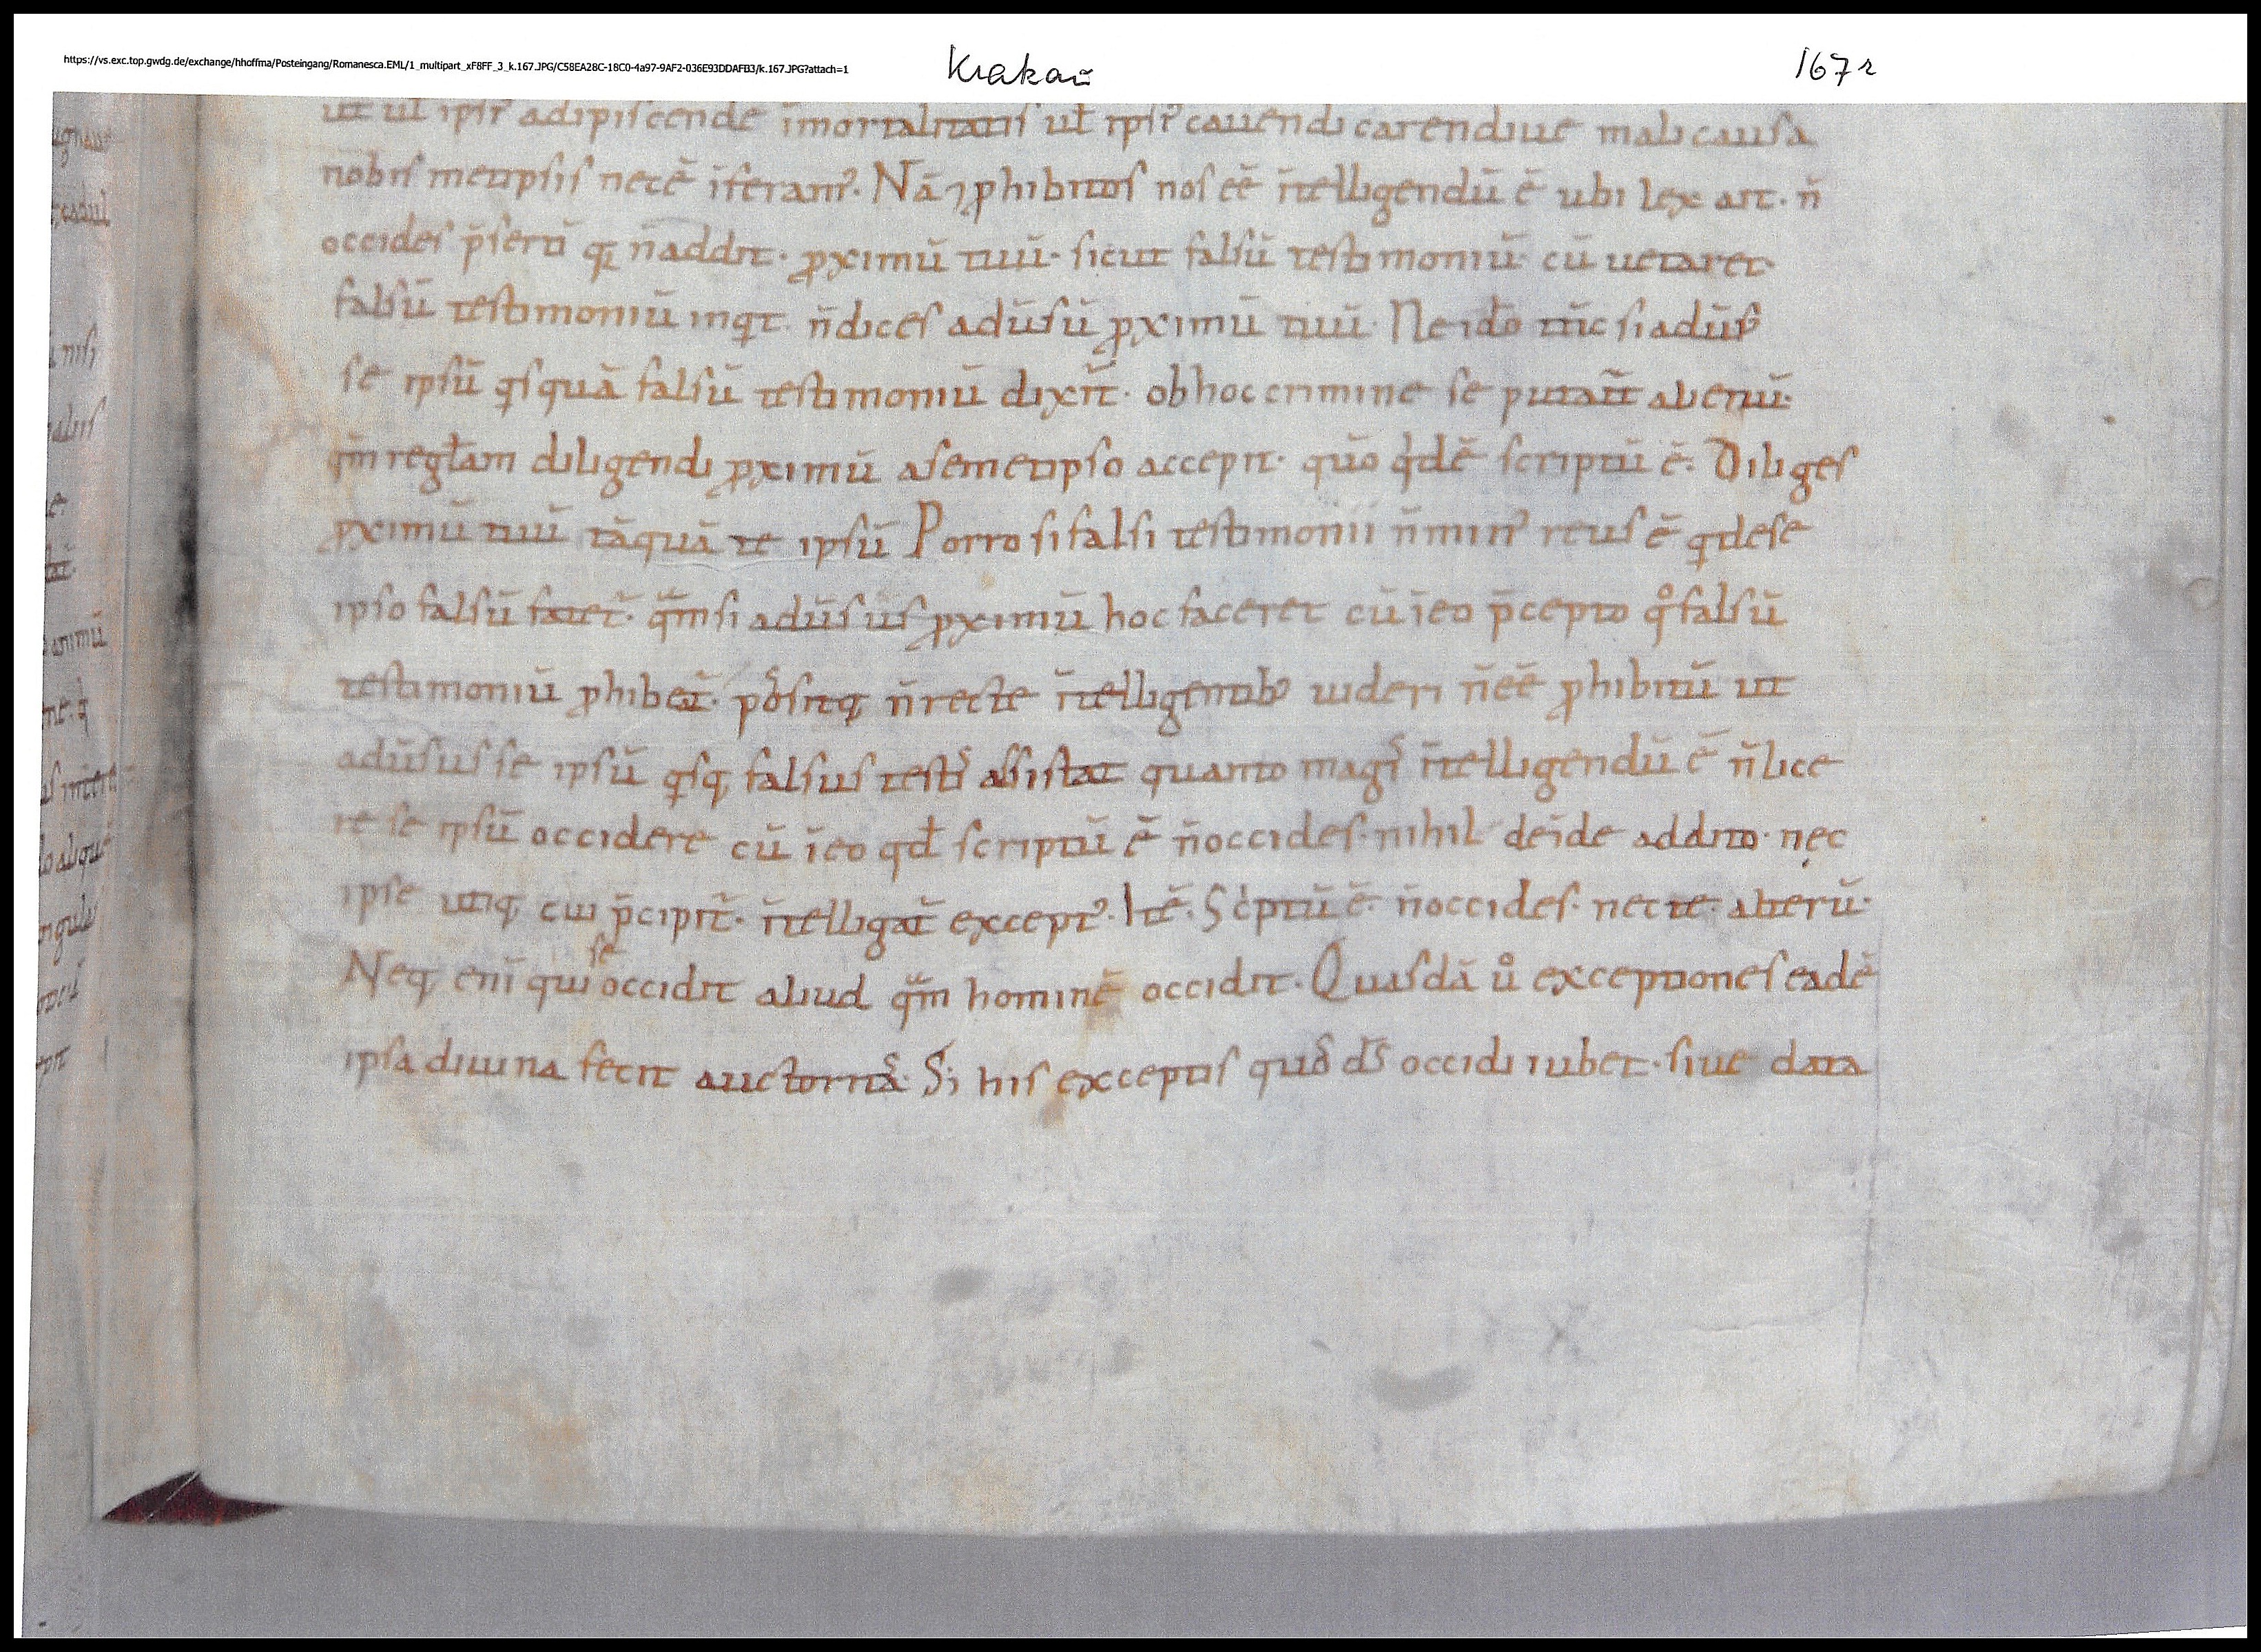 https://vs.exc.top.gwdg.de/exchange/hhoffma/Posteingang/Romanesca.EML/1_multipart_xF8FF_3_k.167.JPG/C58EA28C-18C0-4a97-9AF2-036E93DDAFB3/k.167.JPG?attach=1
Krakau
167r
ut ul ipsi᾽ adipiscende īmortalitatis uł ipsi᾽ cauendi carendiue mali causa
nobis metipsis necē īferam᾽. Nā ⁊ ꝓhibitos nos eē ītelligendū ē ubi lex ait. n̄
occides p̄sertī q n̄ addit. ꝓximū tuū. sicut falsū testimoniū cū uetaret
falsū testimoniū inqt. n̄ dices adūsū ꝓximū tuū. Ne ido tn̄c si adūs᾽
se ipsū qsquā falsū testimoniū dixit̄. ob hoc crimine se putau̅it alienū.
qm̄ regłam diligendi ꝓximū a semetipso accepit. quō qdē scriptū ē. Diliges
ꝓximū tuū tāquā te ipsū Porro si falsi testimonii n̄ min᾽ reus ē q de se
ipso falsū fatet̄. qm̄ si adūsus ꝓximū hoc faceret cū ī eo p̄cepto qº falsū
testimoniū ꝓhibet̄. pos̄sitq n̄ recte ītelligentib᾽ uideri n̄ eē ꝓhibitū ut
adūsus se ipsū qsq falsus testis assistat quanto magis ītelligendū ē n̄ lice
re se ipsū occidere cū ī eo qđ scriptū ē n̄ occides. nihil deīde addito. nec
ipse utiq cui p̄cipit̄. ītelligat̄ except᾽. Itē. Scͥptū ē. n̄ occides. nec te. alterū.
Neq enī qui se occidit aliud qm̄ hominē occidit. Quasdā uº exceptiones eadē
ipsa diuina fecit auctoritas. S; his exceptis quos ds̄ occidi iubet. siue data